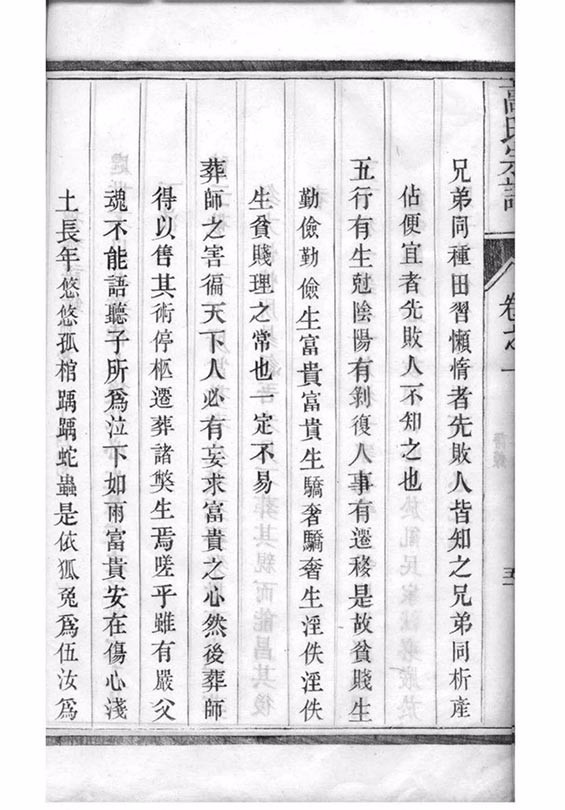 高氏宗譜
卷之一
五
兄弟同種田習懶惰者先敗人皆知之兄弟同析產
佔便宜者先敗人不知之也
五行有生尅陰陽有剝復人事有遷移是故貧賤生
勤儉勤儉生富貴富貴生驕奢驕奢生淫佚淫佚
生貧賤理之常也一定不易
葬師之害徧天下人必有妄求富貴之心然後葬師
得以售其術停柩遷葬諸獘生焉嗟乎雖有嚴父
魂不能語聽子所爲泣下如雨富貴安在傷心淺
土長年悠悠孤棺踽踽蛇蟲是依狐兔爲伍汝爲